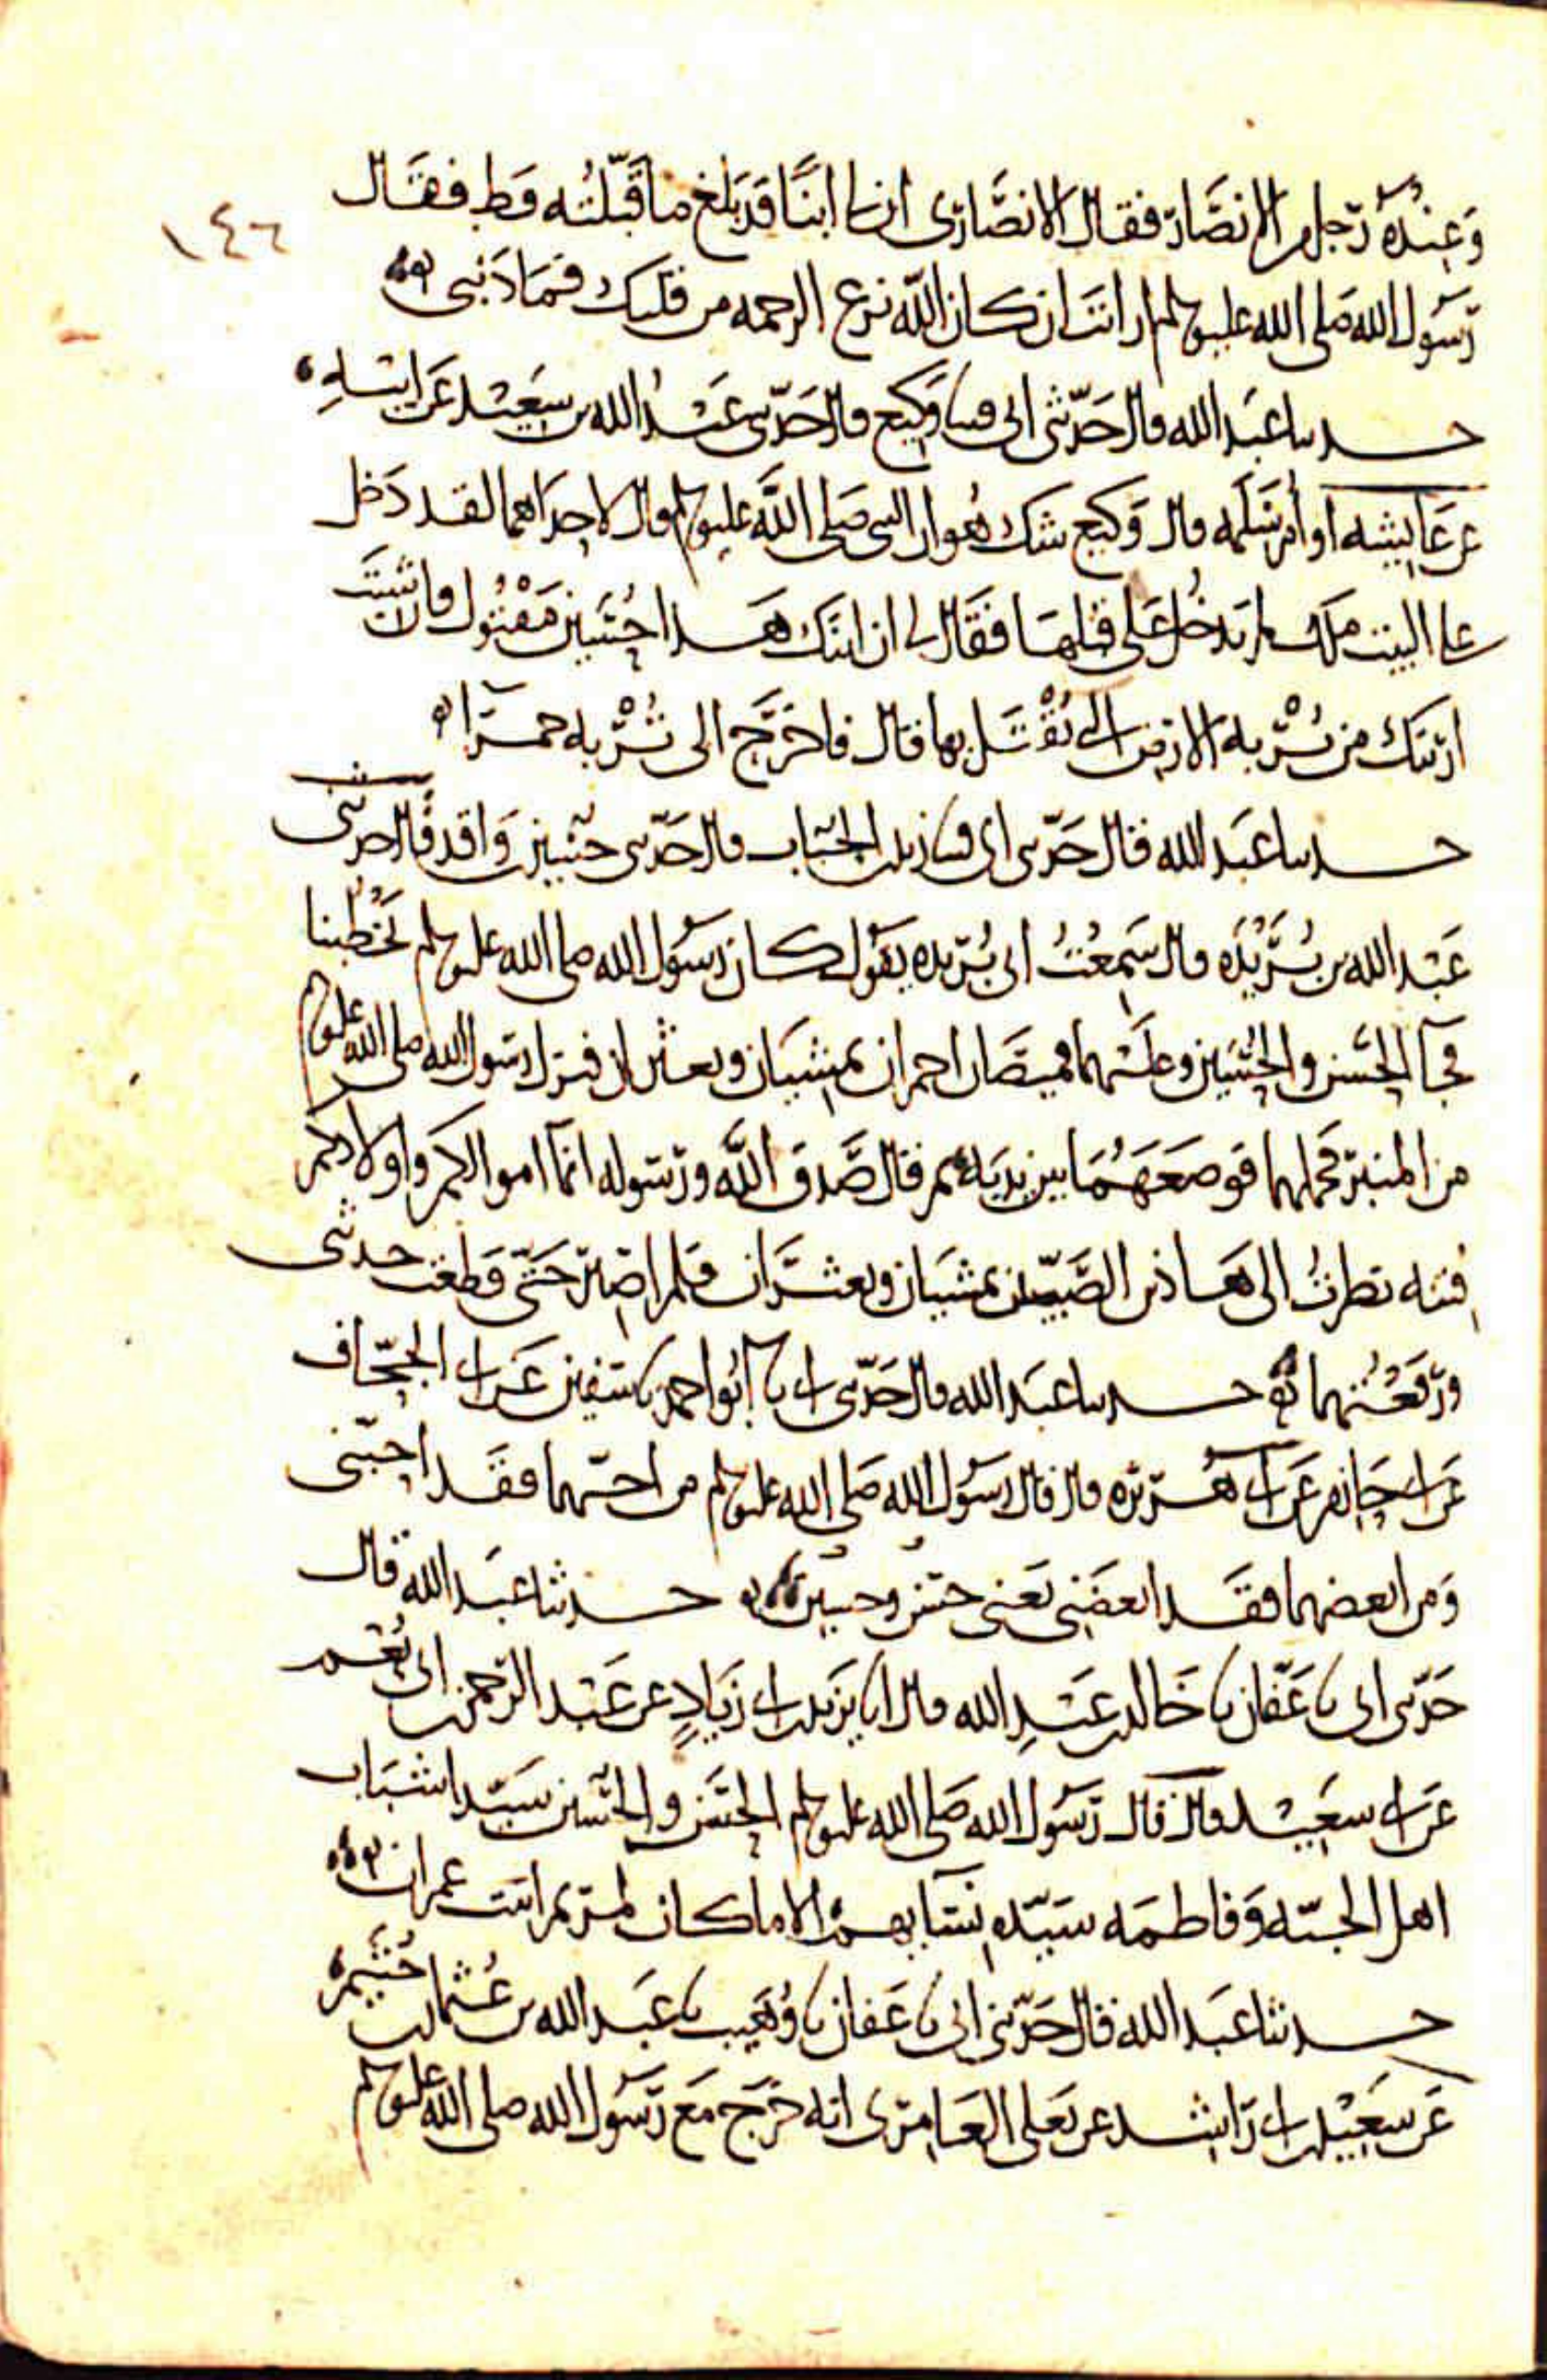 ١٤٦
وعنده رجل من الانصار فقال الانصاري ان لنا ابنا قد بلغ ما قبلته قط فقال
رسول الله صلى الله عليه وسلم ارانت ان كان الله نزع الرحمه من قلبك فما ذنبي
حدثنا عبد الله قال حدثني ابي قثنا وكيع قال حدثني عبد الله بن سعيد عن ابيه
عن عايشه او ام سلمه قال وكيع شك هو ان النبي صلى الله عليه وسلم قال لاحداهما لقد دخل
علي البيت ملك لم يدخل علي قبلها فقال لي ان ابنك هذا حسين مقتول وان شيت
اريتك من تربه الارض التي يقتل بها قال فاخرج الي تربه حمرا
حدثنا عبد الله قال حدثني ابي قثنا زيد بن الحباب قال حدثني حسين بن واقد قال حدثني
عبد الله بن بريده قال سمعت ابي بريده يقول كان رسول الله صلى الله عليه وسلم يخطبنا
فجآ الحسن والحسين وعليهما قميصان احمران يمشيان ويعثران فنزل رسول الله صلى الله عليه وسلم
من المنبر فحملهما فوضعهما بين يديه ثم قال صدق الله ورسوله انمآ اموالكم واولادكم
فتنه نظرت الى هاذين الصبيين يمشيان ويعثران فلم اصبر حتى قطعت حديثي
ورفعتهما حدثنا عبد الله قال حدثني ابي نا ابو احمد نا سفين عن ابي الجحاف
عن ابي حازم عن ابي هريره قال قال رسول الله صلى الله عليه وسلم من احبهما فقد احبني
ومن ابغضهما فقد ابغضني يعني حسن وحسين حدثنا عبد الله قال
حدثني ابي نا عفان نا خالد بن عبد الله قال انا يزيد بن ابي زياد عن عبد الرحمن بن ابي نعم
عن ابي سعيد قال قال رسول الله صلى الله عليه وسلم الحسن والحسين سيدا شباب
اهل الجنه وفاطمه سيده نسآيهم الا ما كان لمريم ابنت عمران
حدثنا عبد الله قال حدثني ابي نا عفان نا وهيب نا عبد الله بن عثمان بن خثيم
عن سعيد بن ابي راشد عن يعلى العامري انه خرج مع رسول الله صلى الله عليه وسلم